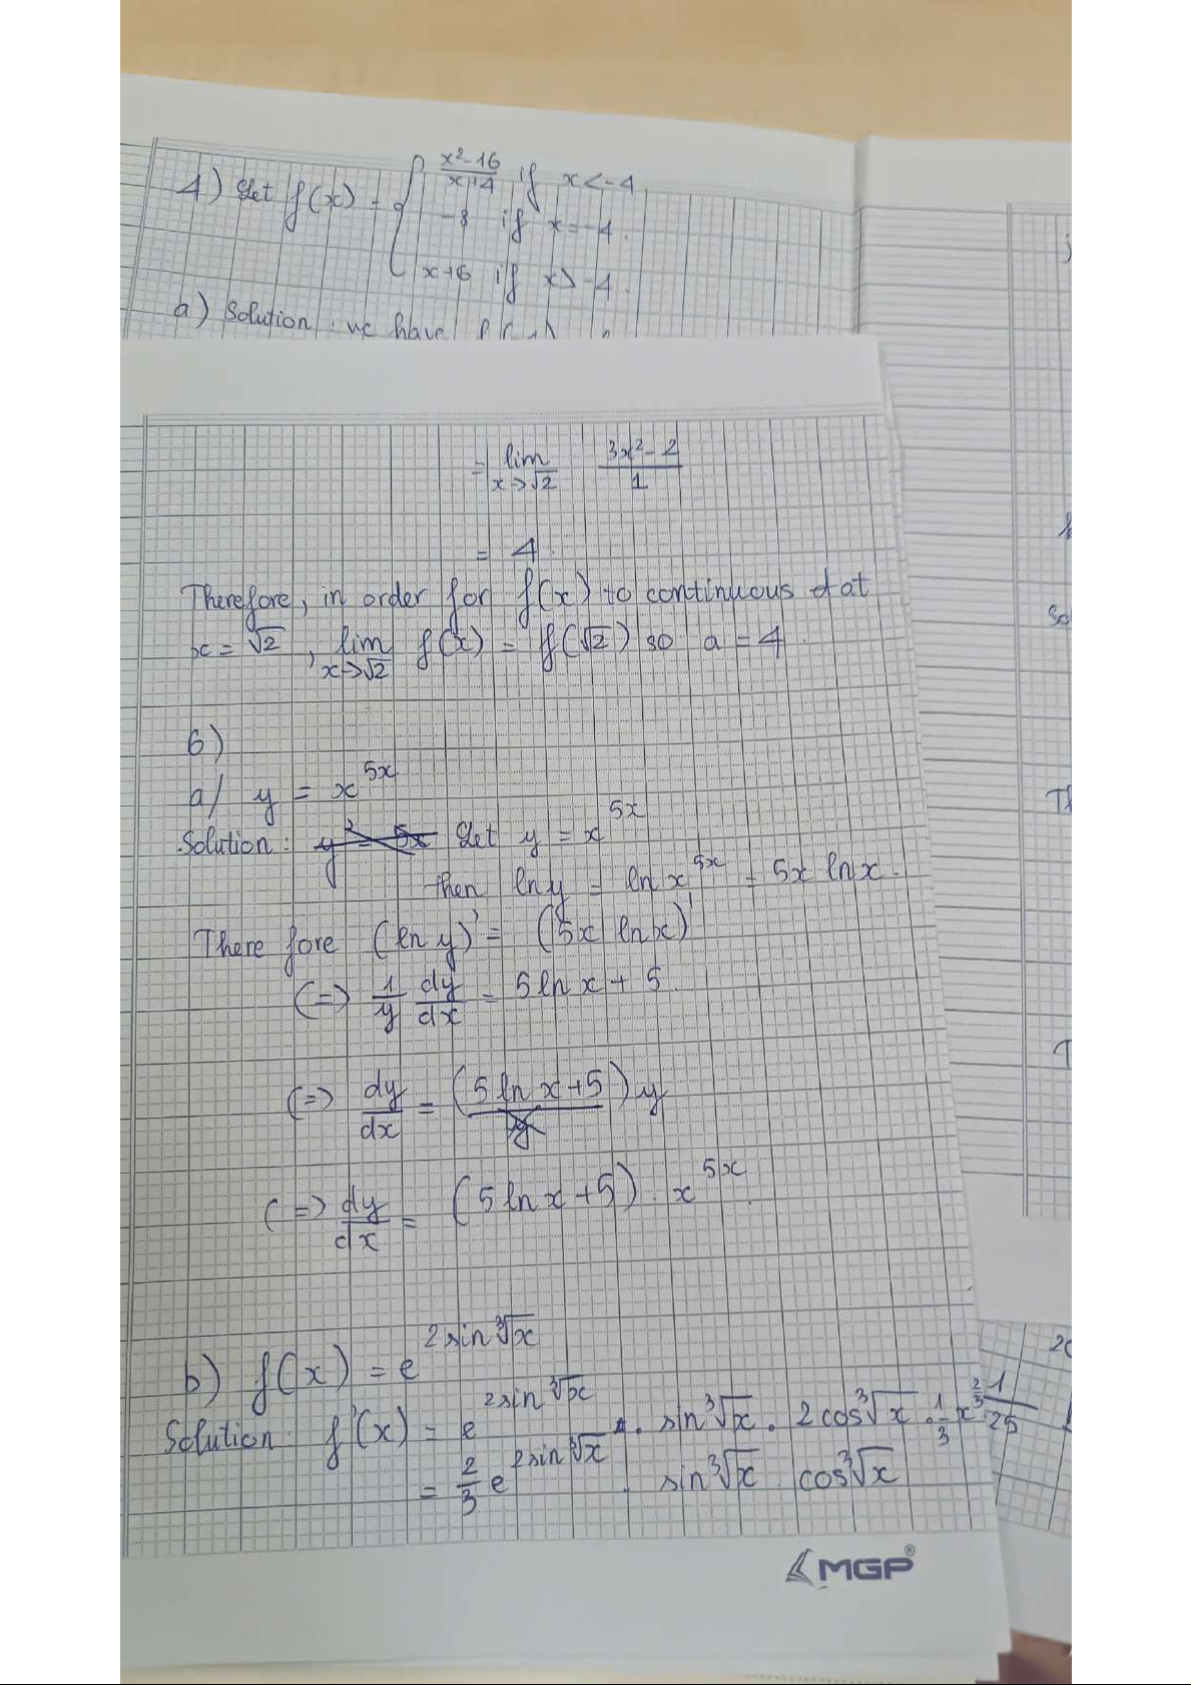 4) Let f(x) = { x²-16 / x+4 if x < -4
-8 if x = -4.
x+6 if x > -4.
a) Solution: we have
= lim x→√2 3x² - 2 / 1
= 4
Therefore, in order for f(x) to continuous at
x = √2, lim x→√2 f(x) = f(√2) so a = 4.
6)
a/ y = x^5x
Solution: Let y = x^5x
then ln y = ln x^5x = 5x ln x.
There fore (ln y)' = (5x ln x)'
(=) 1/y dy/dx = 5 ln x + 5.
(=) dy/dx = (5 ln x + 5) y
(=) dy/dx = (5 ln x + 5) . x^5x.
b) f(x) = e^2sin∛x
Solution: f'(x) = e^2sin∛x . sin ∛x . 2cos ∛x . 1/3 x
= 2/3 e^2sin∛x . sin ∛x . cos ∛x
MGP®